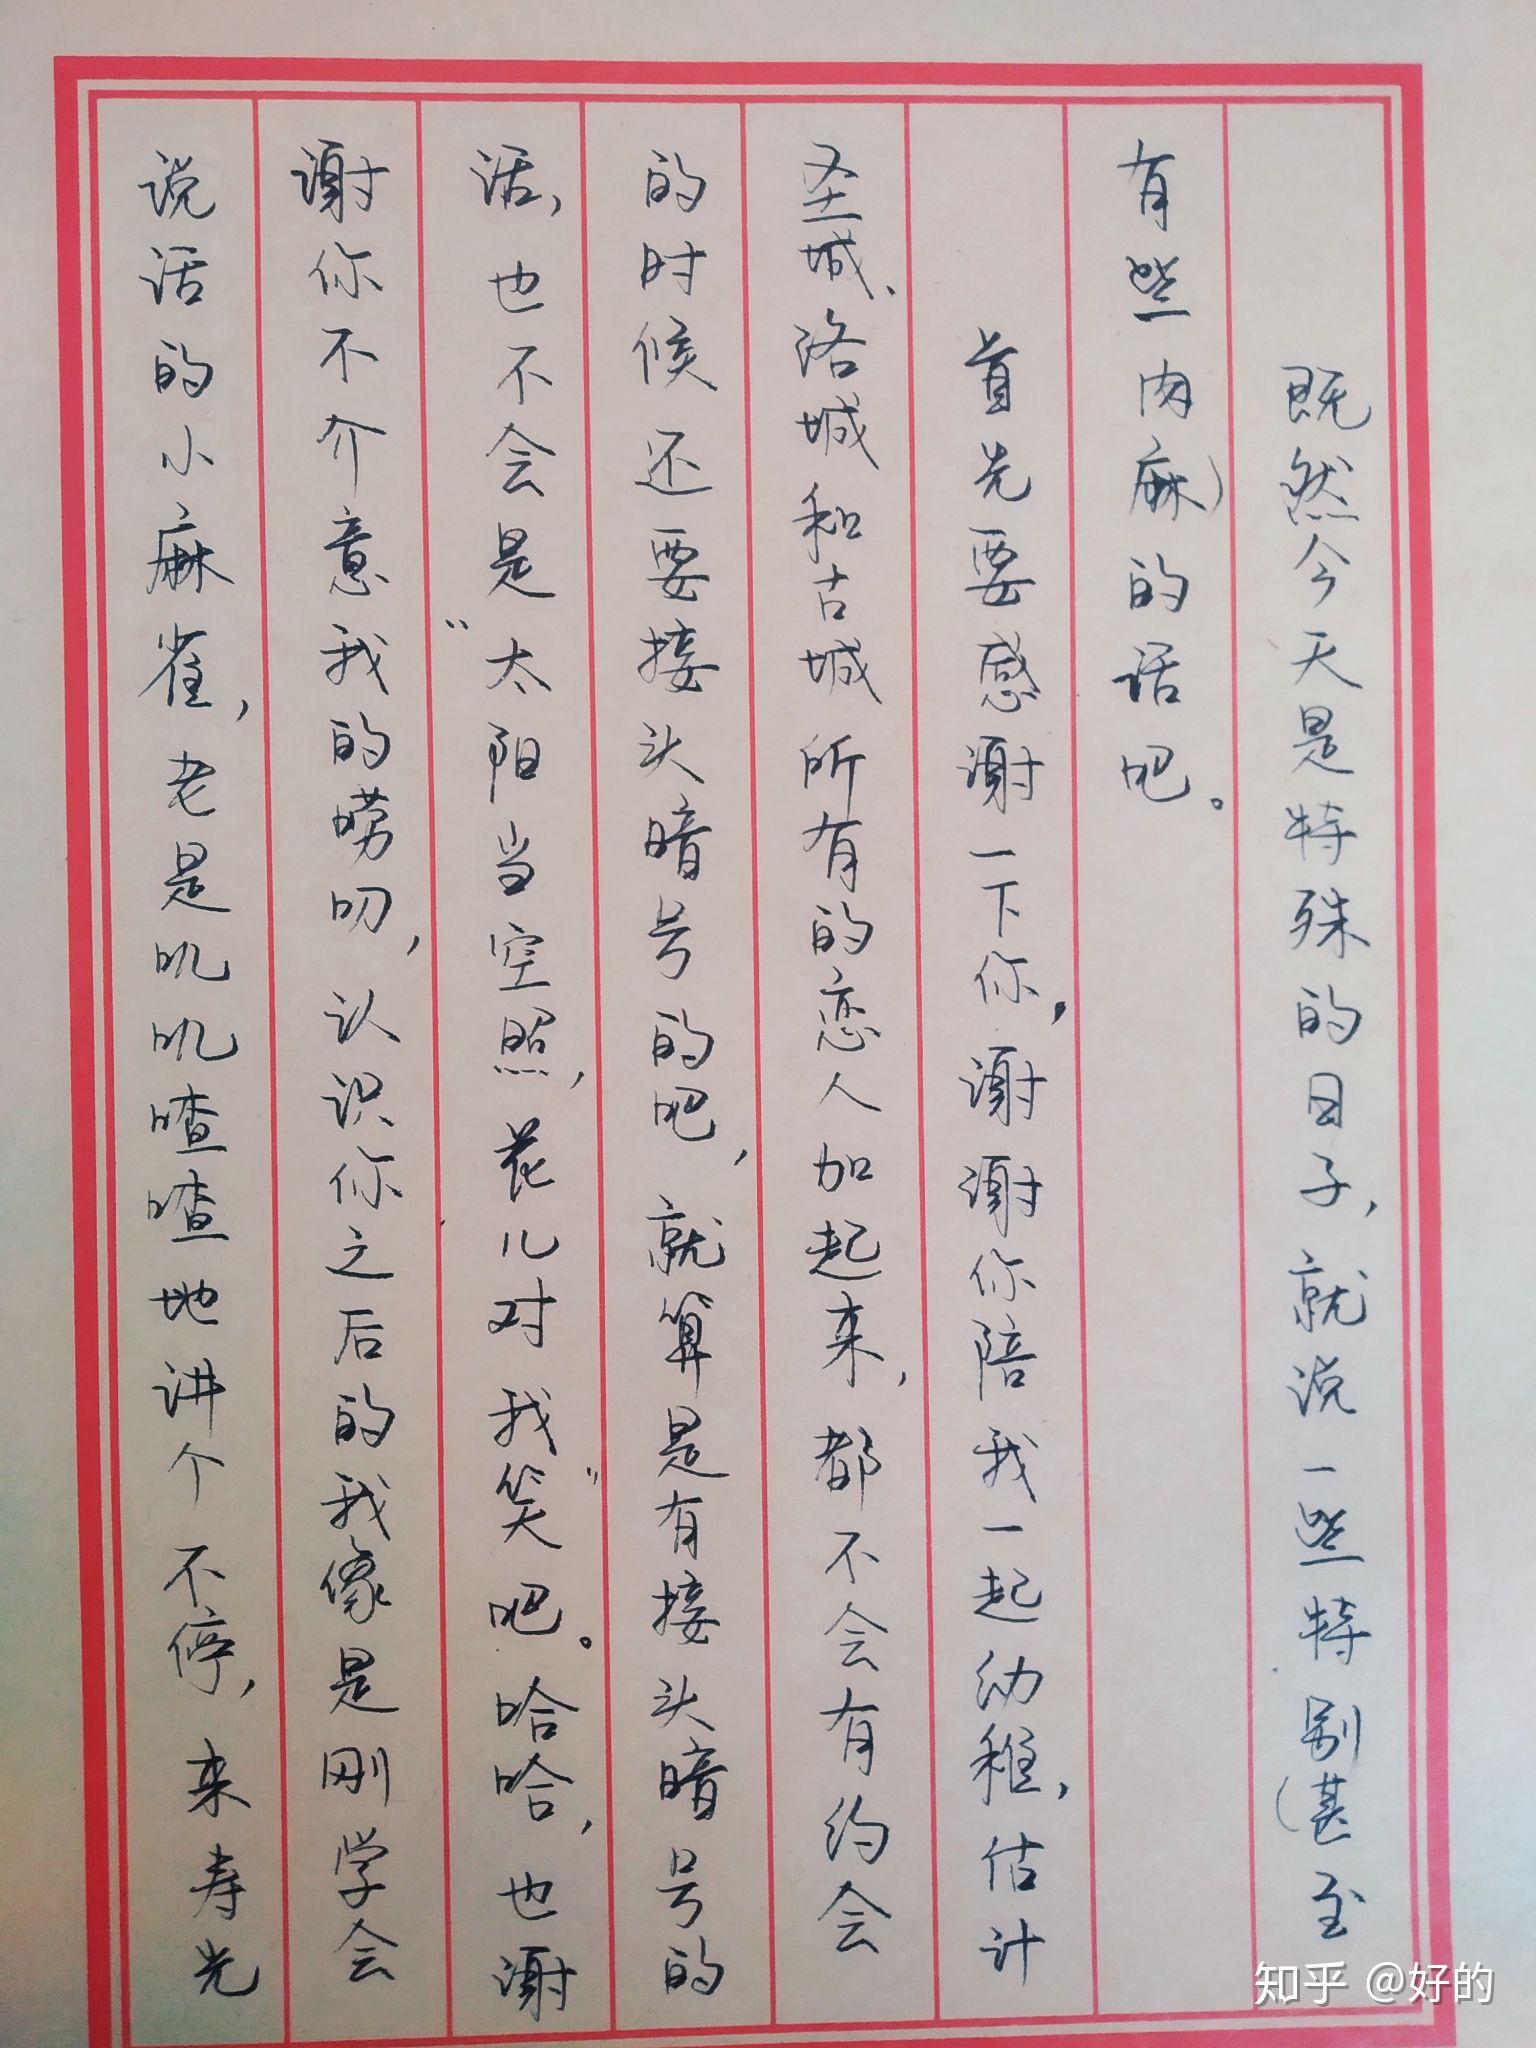 既然今天是特殊的日子，就说一些特别（甚至
有些肉麻）的话吧。
首先要感谢一下你，谢谢你陪我一起幼稚，估计
圣城、洛城和古城所有的恋人加起来，都不会有约会
的时候还要接头暗号的吧，就算是有接头暗号的
话，也不会是“太阳当空照，花儿对我笑”吧。哈哈，也谢
谢你不介意我的唠叨，认识你之后的我像是刚学会
说话的小麻雀，老是叽叽喳喳地讲个不停，来寿光
知乎 @好的